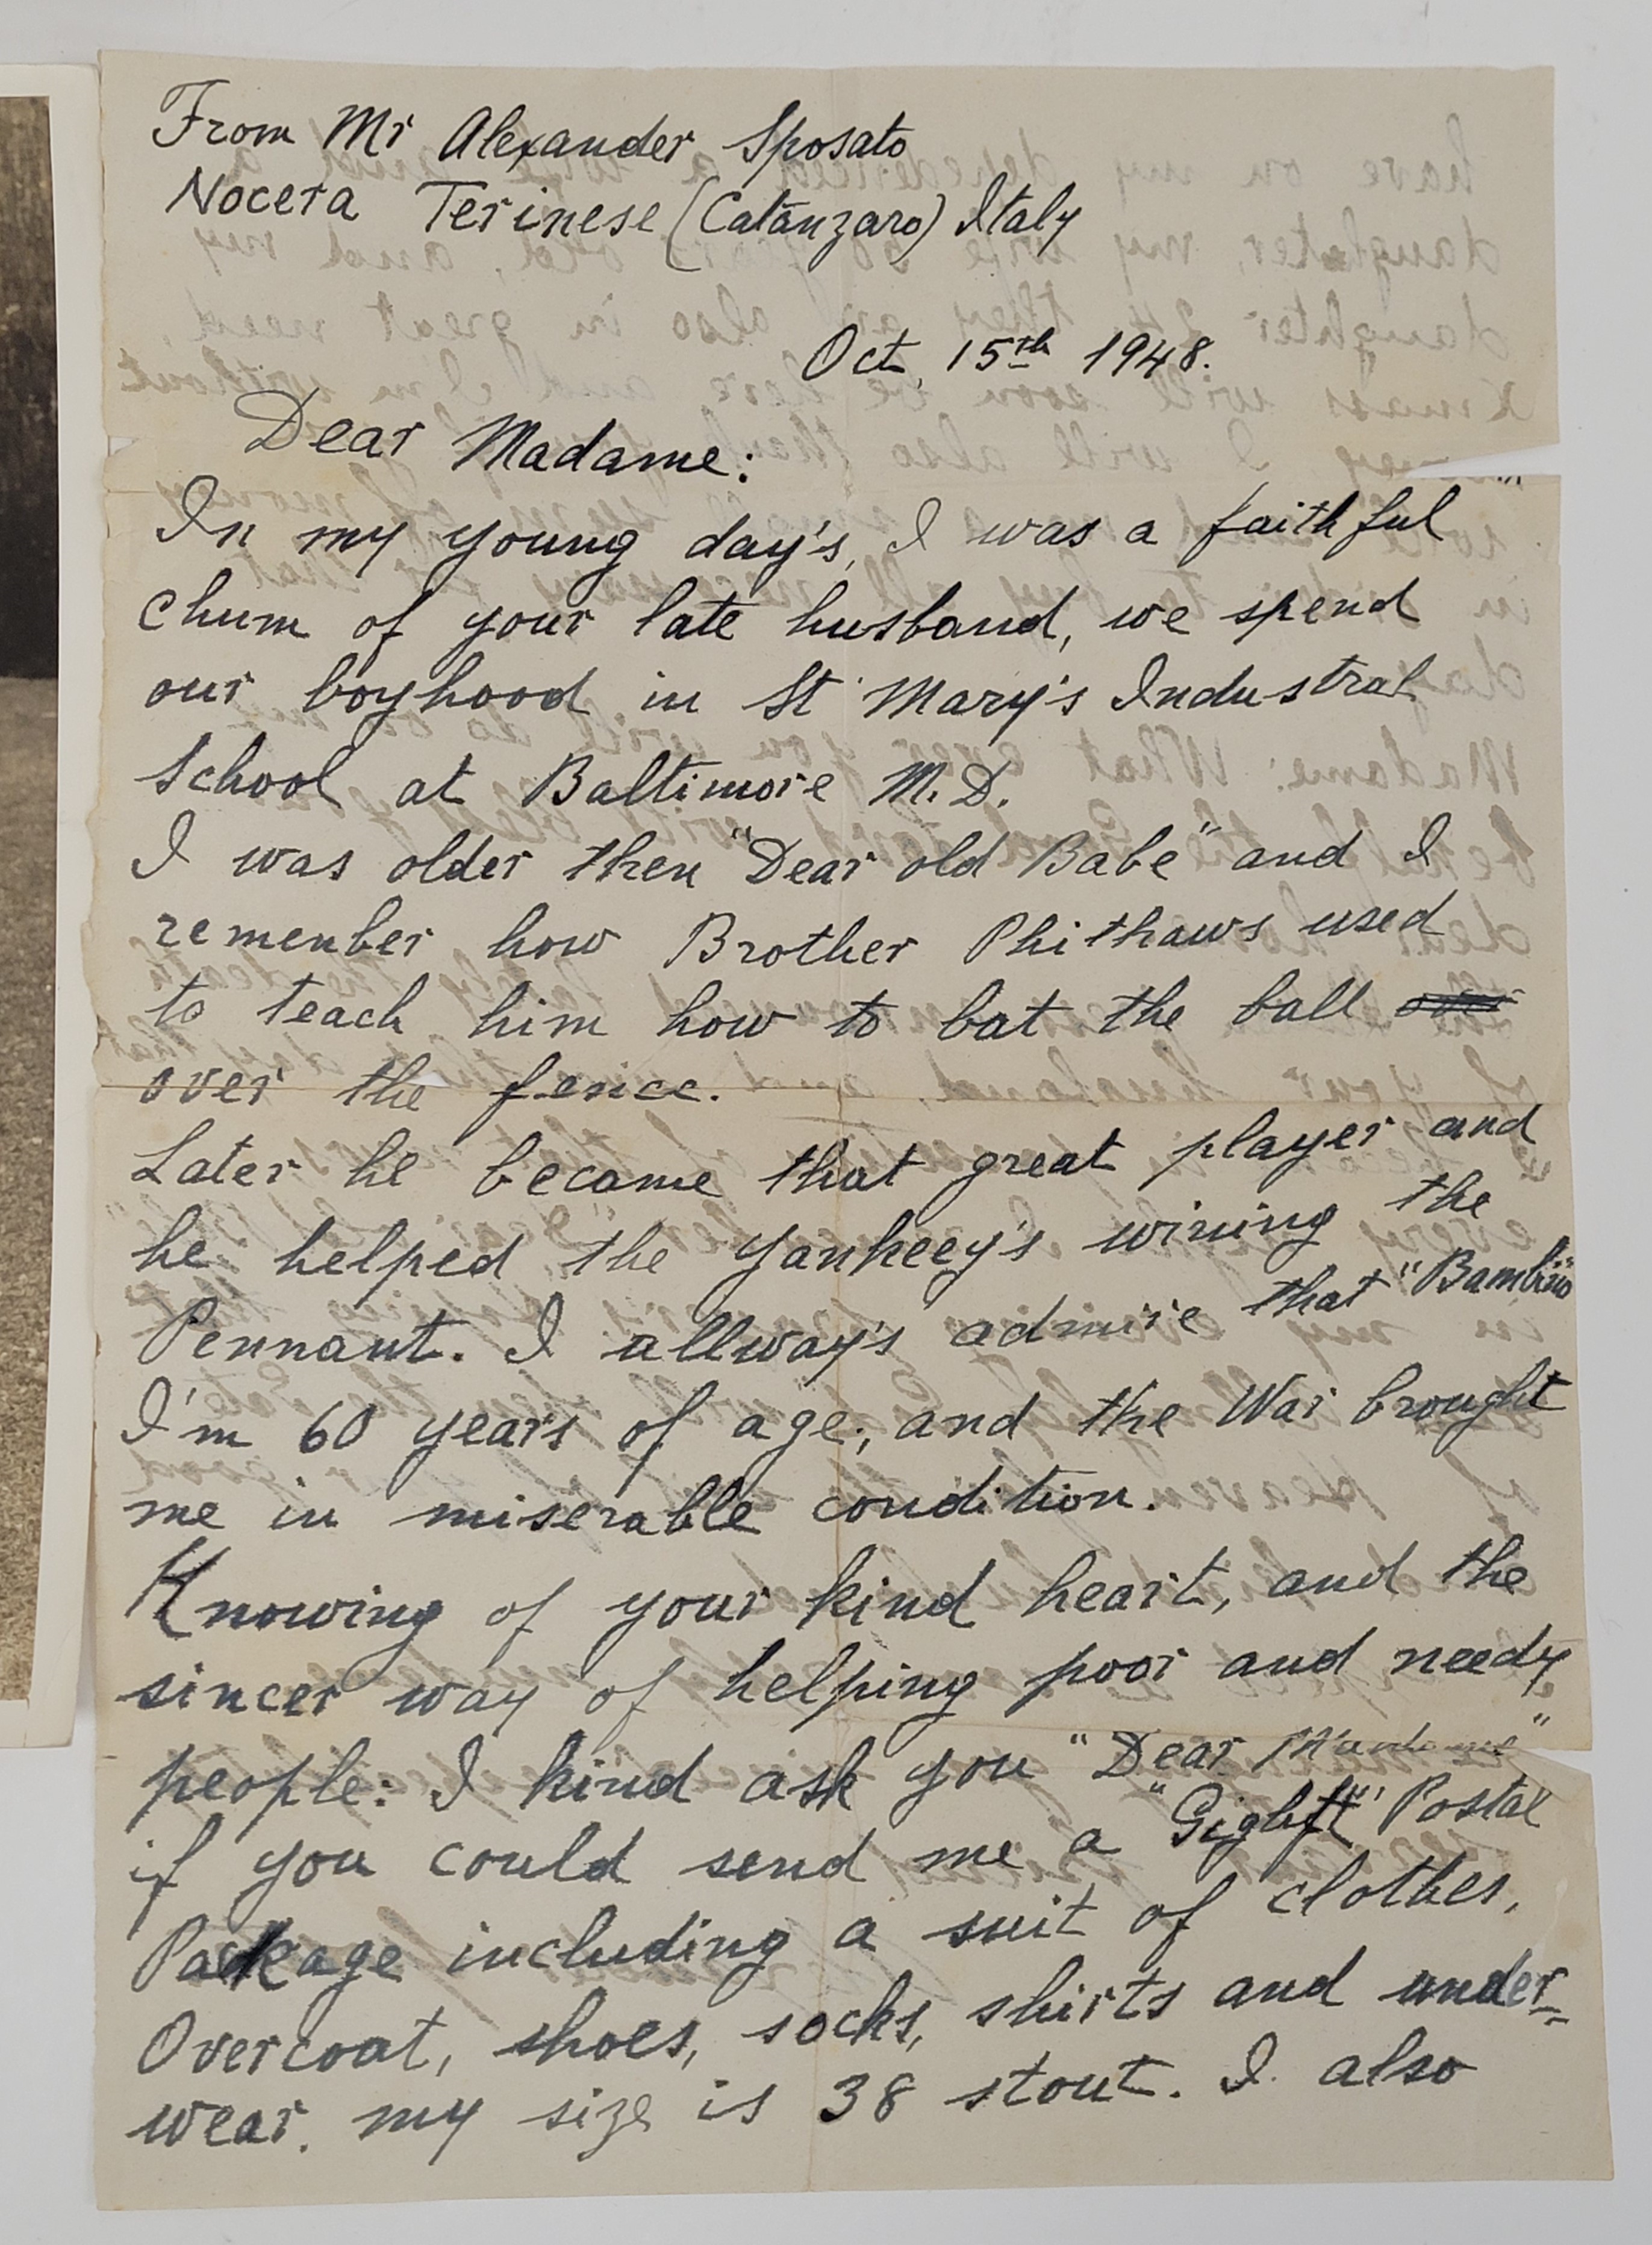 From Mr Alexander Sposato
Nocera Terinese (Catanzaro) Italy
Oct, 15th 1948.
Dear Madame:
In my young day's, I was a faithful
chum of your late husband, we spend
our boyhood in St Mary's Industral
School at Baltimore M.D.
I was older then "Dear old Babe" and I
remenber how Brother Phithaws used
to teach him how to bat the ball
over the fence.
Later he became that great player and
he helped the Yankeey's wining the
Pennant. I allway's admire that "Bambino"
I'm 60 years of age, and the War brought
me in miserable condition.
Knowing of your kind heart, and the
sincer way of helping poor and needy
people: I kind ask you "Dear Madame"
if you could send me a "Gight" Postal
Package including a suit of clothes,
Overcoat, shoes, socks, shirts and under-
wear. my size is 38 stout. I also